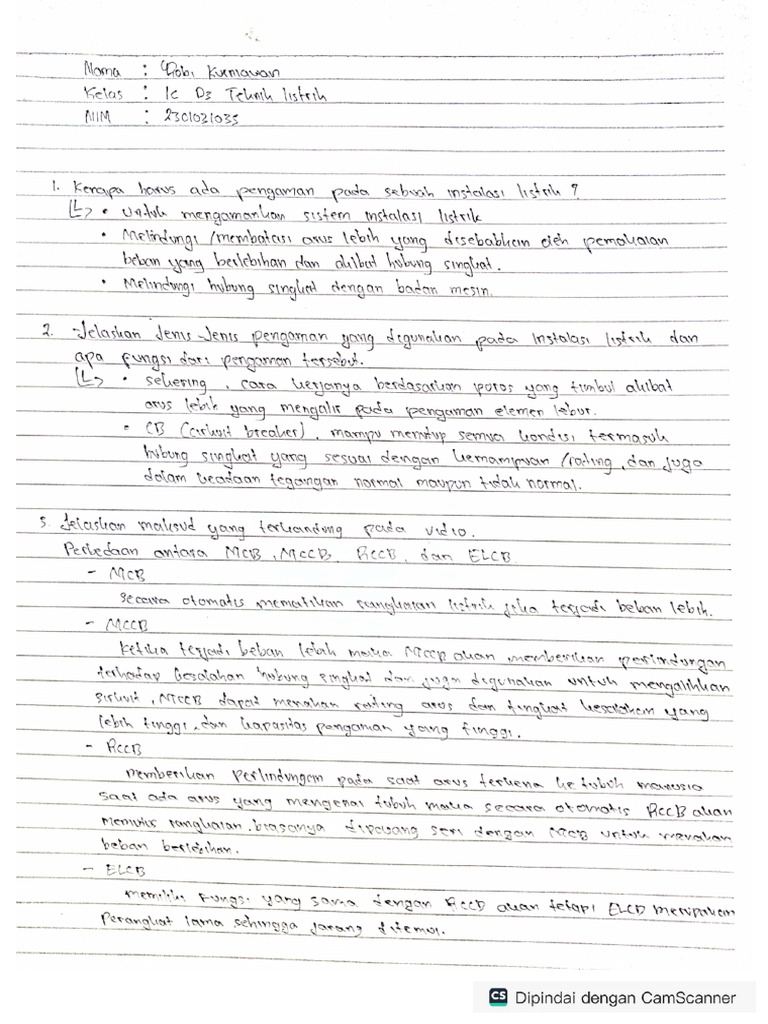 Nama : Robi Kurmawan
Kelas : 1c D3 Teknik listrik
NIM : 2301031035
1. Kenapa harus ada pengaman pada sebuah instalasi listrik ?
↳ • Untuk mengamankan sistem instalasi listrik
• Melindungi /membatasi arus lebih yang disebabkan oleh pemakaian
beban yang berlebihan dan akibat hubung singkat.
• Melindungi hubung singkat dengan badan mesin.
2. Jelaskan Jenis-Jenis pengaman yang digunakan pada Instalasi listrik dan
apa fungsi dari pengaman tersebut.
↳ • sekering, cara kerjanya berdasarkan poros yang timbul akibat
arus lebih yang mengalir pada pengaman elemen lebur.
• CB (cirkuit breaker), mampu menutup semua kondisi termasuk
hubung singkat yang sesuai dengan kemampuan /rating, dan juga
dalam keadaan tegangan normal maupun tidak normal.
3. Jelaskan maksud yang terkandung pada video.
Perbedaan antara MCB, MCCB, RCCB, dan ELCB
- MCB
Secara otomatis mematikan rangkaian listrik jika terjadi beban lebih.
- MCCB
Ketika terjadi beban lebih maka MCCB akan memberikan perlindungan
terhadap kesalahan hubung singkat dan juga digunakan untuk mengalihkan
sirkuit, MCCB dapat menahan rating arus dan tingkat kesalahan yang
lebih tinggi, dan kapasitas pengaman yang tinggi.
- RCCB
memberikan Perlindungan pada saat arus terkena ke tubuh manusia
saat ada arus yang mengenai tubuh maka secara otomatis RCCB akan
memutus rangkaian. biasanya dipasang seri dengan MCB untuk menahan
beban berlebihan.
- ELCB
memiliki fungsi yang sama dengan RCCB akan tetapi ELCB merupakan
Perangkat lama sehingga jarang ditemui.
CS Dipindai dengan CamScanner